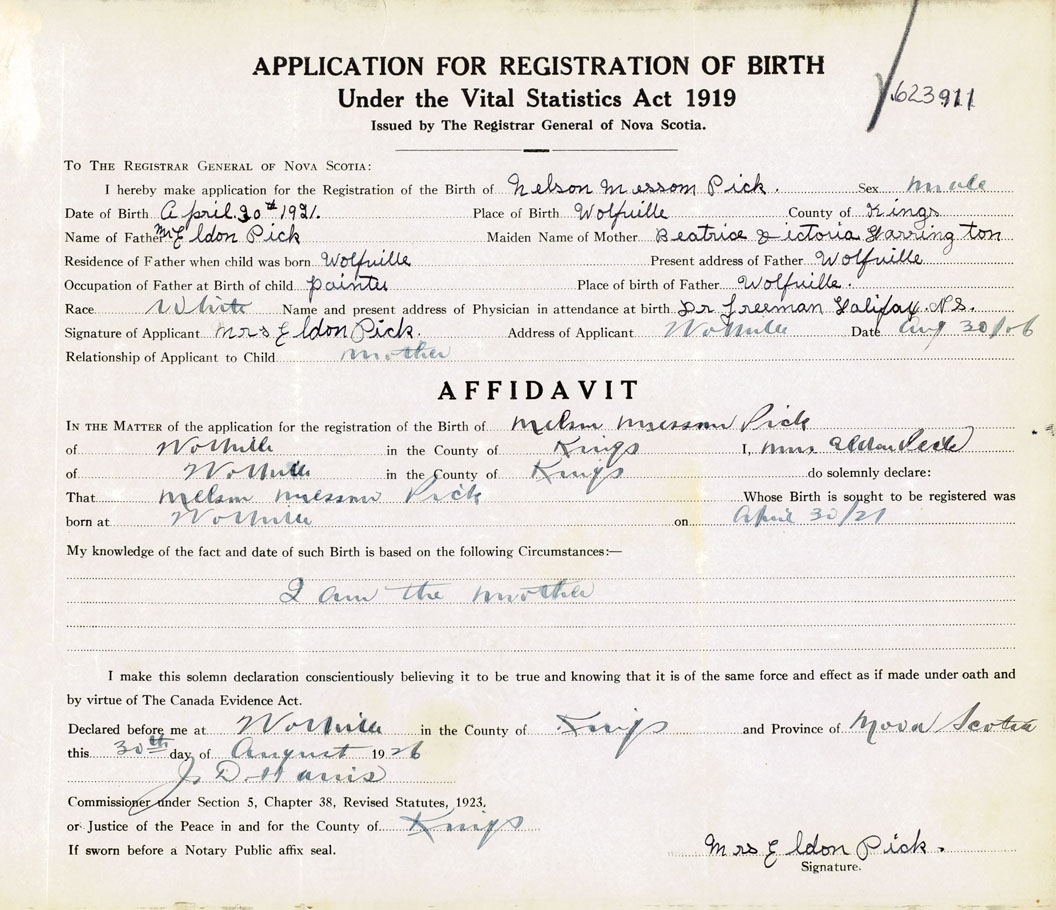 APPLICATION FOR REGISTRATION OF BIRTH
Under the Vital Statistics Act 1919
623911
Issued by The Registrar General of Nova Scotia.
TO THE REGISTRAR GENERAL OF NOVA SCOTIA:
I hereby make application for the Registration of the Birth of Nelson Messom Pick. Sex male
Date of Birth April. 30th 1921. Place of Birth Wolfville County of Kings
Name of Father Mr Eldon Pick Maiden Name of Mother Beatrice Victoria Harrington
Residence of Father when child was born Wolfville Present address of Father Wolfville
Occupation of Father at Birth of child painter Place of birth of Father Wolfville.
Race White Name and present address of Physician in attendance at birth Dr Freeman Halifax, N.S.
Signature of Applicant Mrs Eldon Pick. Address of Applicant Wolfville Date Aug 30/26
Relationship of Applicant to Child mother
AFFIDAVIT
IN THE MATTER of the application for the registration of the Birth of Nelson Messom Pick
of Wolfville in the County of Kings I, Mrs. Eldon Pick
of Wolfville in the County of Kings do solemnly declare:
That Nelson Messom Pick Whose Birth is sought to be registered was
born at Wolfville on April 30/21
My knowledge of the fact and date of such Birth is based on the following Circumstances:—
I am the mother
I make this solemn declaration conscientiously believing it to be true and knowing that it is of the same force and effect as if made under oath and
by virtue of The Canada Evidence Act.
Declared before me at Wolfville in the County of Kings and Province of Nova Scotia
this 30th day of August 1926
Commissioner under Section 5, Chapter 38, Revised Statutes, 1923.
or Justice of the Peace in and for the County of Kings
If sworn before a Notary Public affix seal.
Mrs Eldon Pick.
Signature.